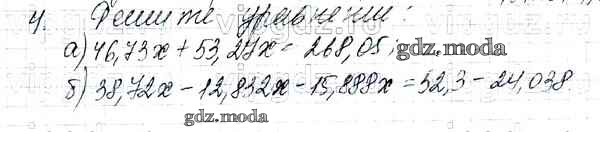 4. Решите уравнений:
а) 46,73x + 53,27x = 268,05;
б) 38,72x - 12,832x - 15,888x = 52,3 - 24,038
gdz.moda
gdz.moda
gdz.moda